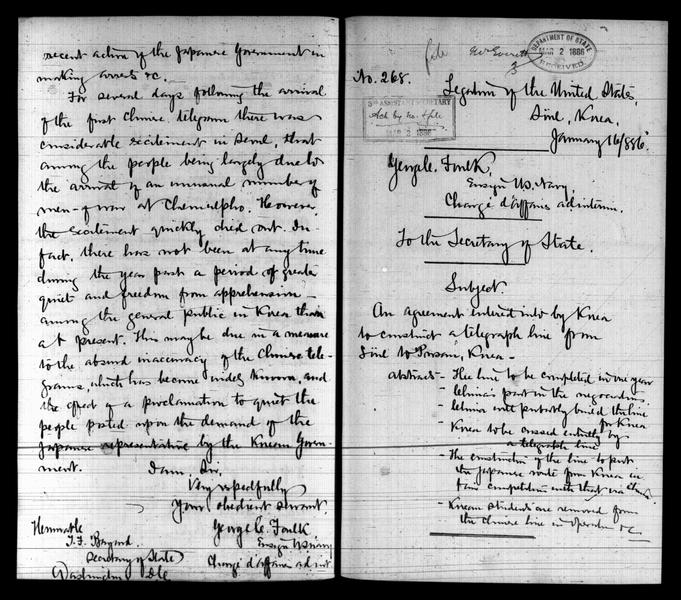 recent action of the Japanese Government in
making arrests &c.
For several days following the arrival
of the first Chinese telegram there was
considerable excitement in Seoul, that
among the people being largely due to
the arrival of an unusual number of
men-of-war at Chemulpho. However,
the excitement quickly died out. In
fact, there has not been at any time
during the year past a period of greater
quiet and freedom from apprehension
among the general public in Korea than
at present. This may be due in a measure
to the absurd inaccuracy of the Chinese tele-
grams, which has become widely known, and
the effect of a proclamation to quiet the
people posted upon the demand of the
Japanese representative by the Korean Govern-
ment.
I am, Sir,
Very respectfully
Your obedient servant.
George C. Foulk
Ensign U.S. Navy
Chargé d'affaires ad int.
Honorable
T. F. Bayard
Secretary of State
Washington D.C.
file
DEPARTMENT OF STATE
MAR 2 1886
RECEIVED
No. 268.
3RD ASSISTANT SECRETARY
Ack by no. & file
MAR 2 1886
Legation of the United States,
Söul, Korea,
January 16/886
George C. Foulk,
Ensign U.S. Navy,
Chargé d'affaires ad interim.
To the Secretary of State.
Subject
An agreement entered into by Korea
to construct a telegraph line from
Söul to Pusan, Korea -
Abstract - The line to be completed in one year
- China's part in the negociations,
- China will probably build the line
for Korea
- Korea to be crossed entirely by
a telegraph line
- The construction of the line to put
the Japanese route from Korea in
fair competition with that via China
- Korean students are removed from
the Chinese line in operation &c.